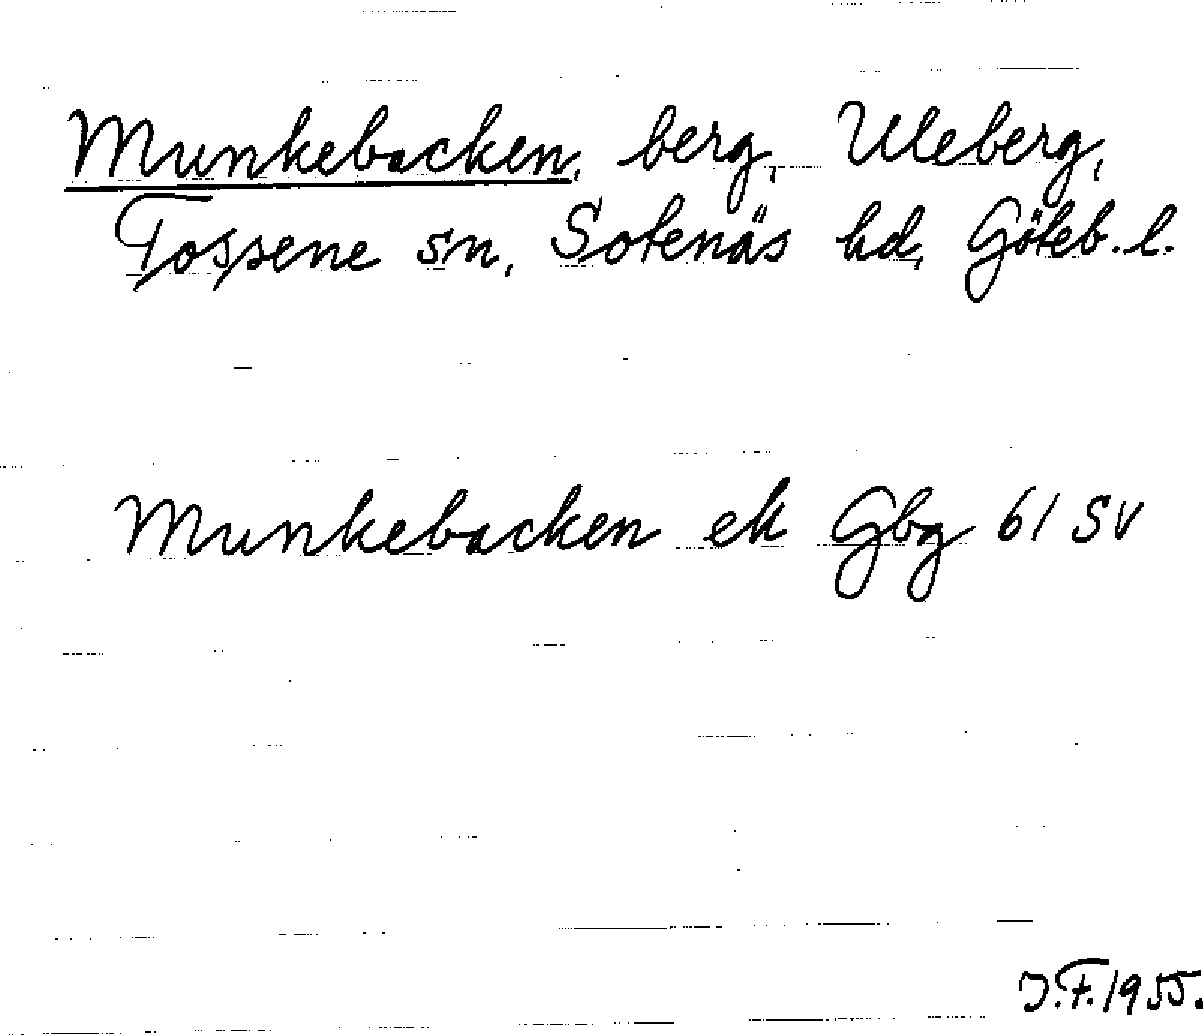 Munkebacken, berg, Uleberg,
Tossene sn, Sotenäs hd, Göteb. l.
Munkebacken ek Gbg 61 SV
J.F. 1955.